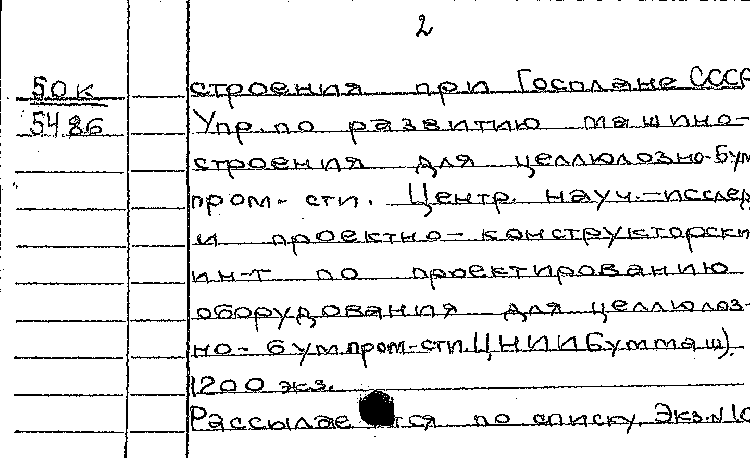 2
50к строения при Госплане СССР
5486 Упр. по развитию машино-
строения для целлюлозно-бум
пром-сти. Центр. науч.-исслед
и проектно-конструкторски
ин-т по проектированию
оборудования для целлюлоз-
но-бум.пром-сти ЦНИИБуммаш).
1200 экз.
Рассылается по списку. Экз.N10